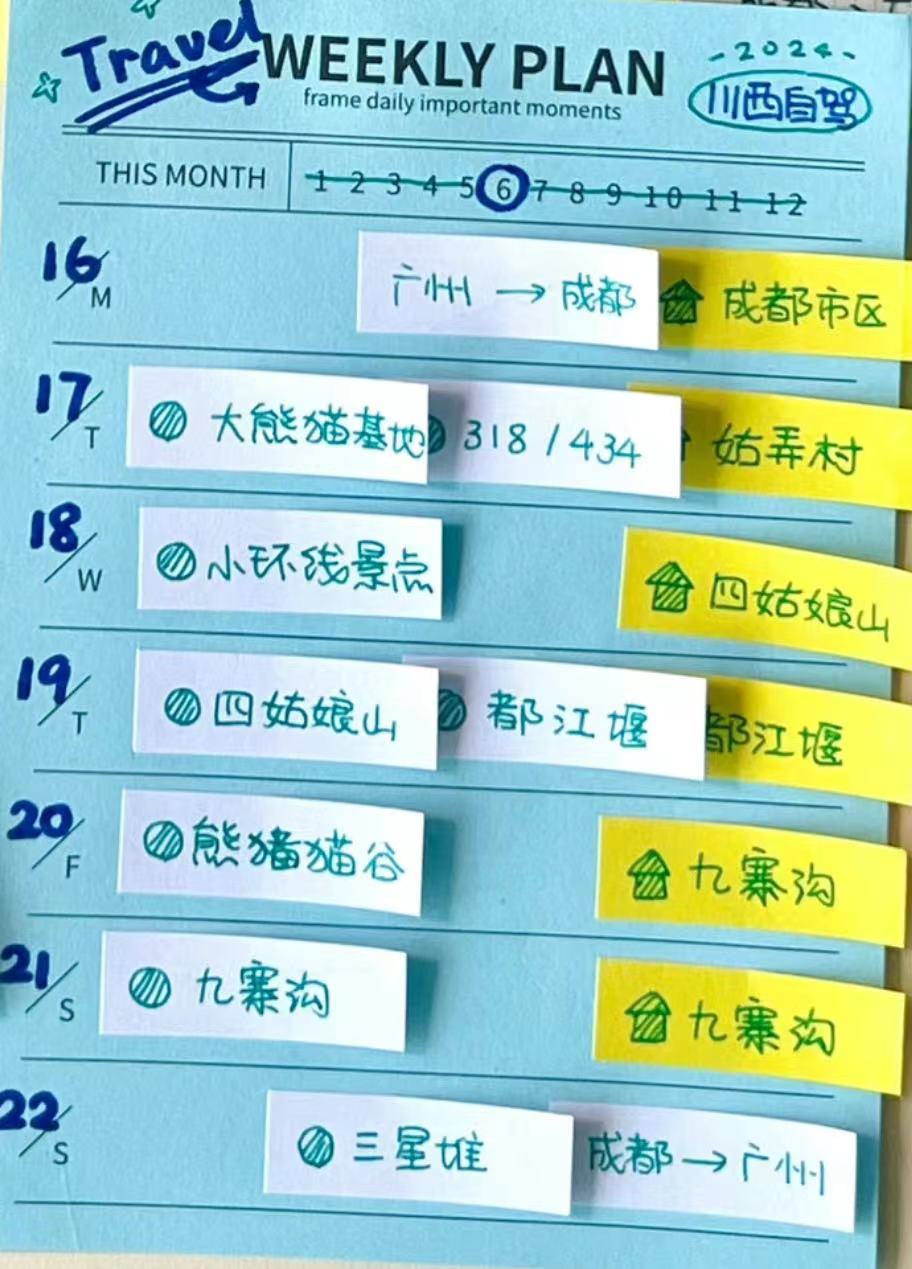 Travel
WEEKLY PLAN
-2024-
frame daily important moments
川西自驾
THIS MONTH 1 2 3 4 5 6 7 8 9 10 11 12
16/M 广州 → 成都 成都市区
17/T 大熊猫基地 318 / 434 姑弄村
18/W 小环线景点 四姑娘山
19/T 四姑娘山 都江堰 都江堰
20/F 熊猪猫谷 九寨沟
21/S 九寨沟 九寨沟
22/S 三星堆 成都 → 广州